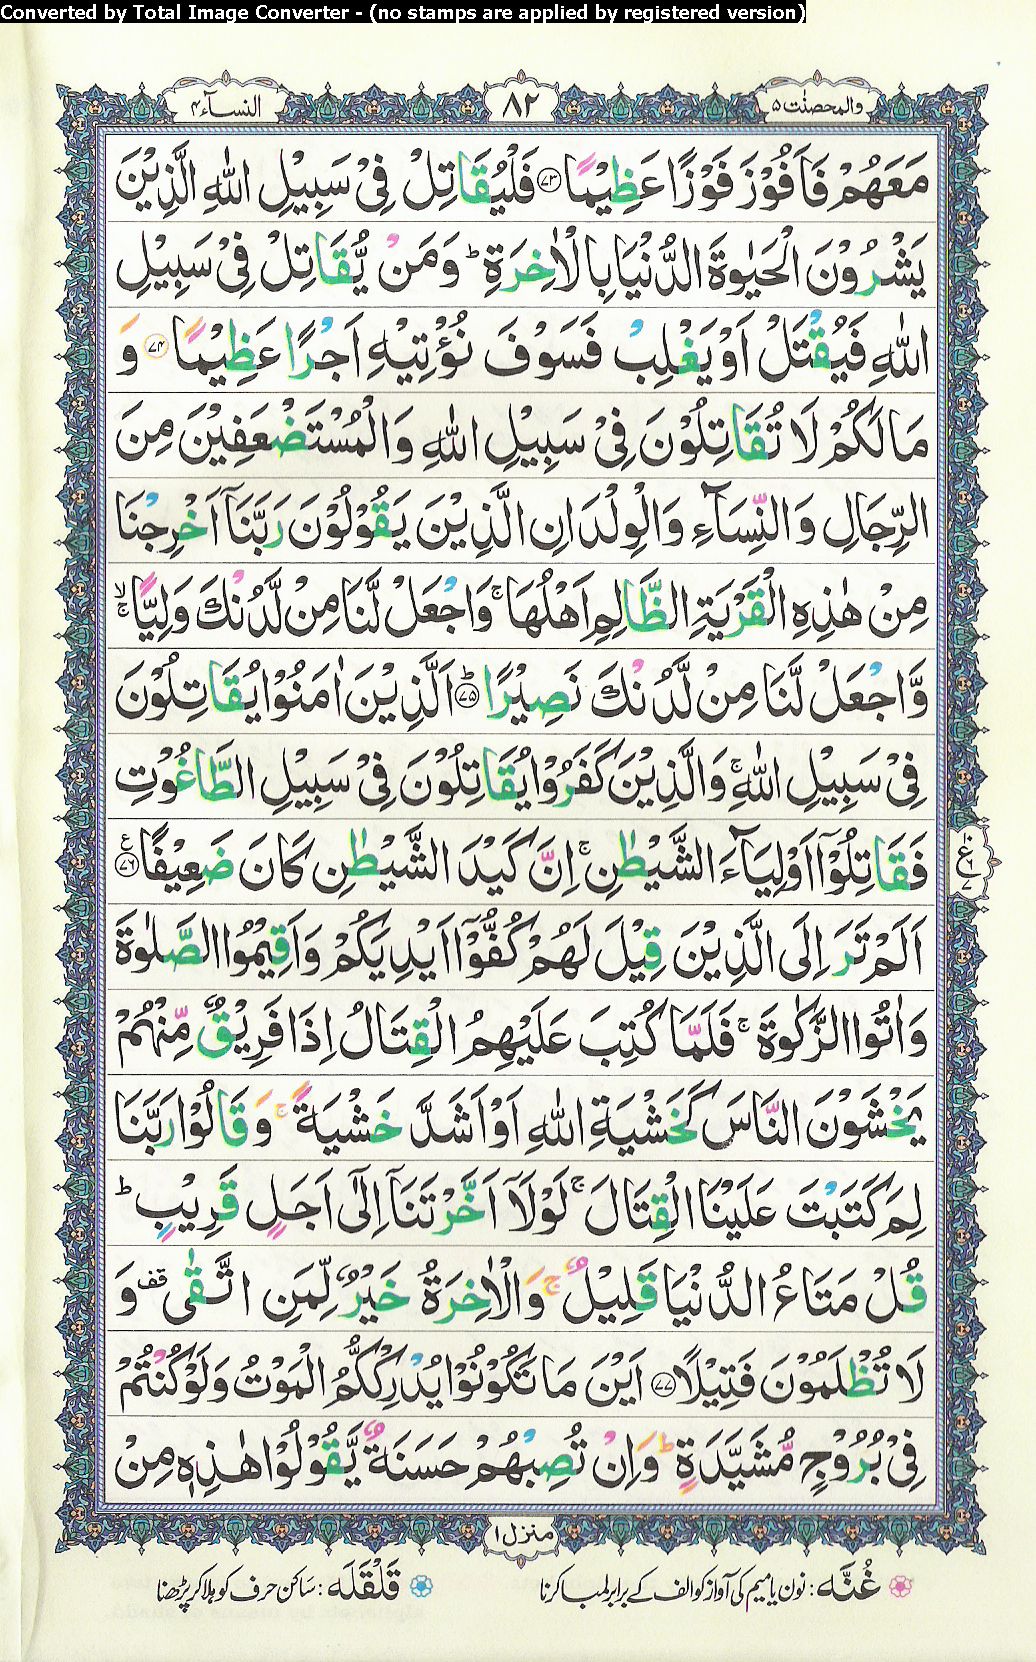 Converted by Total Image Converter - (no stamps are applied by registered version)
والمحصنٰت ۵
۸۲
النساۤء ۴
مَعَهُمْ فَاَفُوْزَ فَوْزًا عَظِيْمًا ﴿۷۳﴾ فَلْيُقَاتِلْ فِىْ سَبِيْلِ اللّٰهِ الَّذِيْنَ
يَشْرُوْنَ الْحَيٰوةَ الدُّنْيَا بِالْاٰخِرَةِ ؕ وَمَنْ يُّقَاتِلْ فِىْ سَبِيْلِ
اللّٰهِ فَيُقْتَلْ اَوْ يَغْلِبْ فَسَوْفَ نُؤْتِيْهِ اَجْرًا عَظِيْمًا ﴿۷۴﴾ وَ
مَا لَكُمْ لَا تُقَاتِلُوْنَ فِىْ سَبِيْلِ اللّٰهِ وَالْمُسْتَضْعَفِيْنَ مِنَ
الرِّجَالِ وَالنِّسَآءِ وَالْوِلْدَانِ الَّذِيْنَ يَقُوْلُوْنَ رَبَّنَاۤ اَخْرِجْنَا
مِنْ هٰذِهِ الْقَرْيَةِ الظَّالِمِ اَهْلُهَا ۚ وَاجْعَلْ لَّنَا مِنْ لَّدُنْكَ وَلِيًّا ۙۚ
وَّاجْعَلْ لَّنَا مِنْ لَّدُنْكَ نَصِيْرًا ؕ﴿۷۵﴾ اَلَّذِيْنَ اٰمَنُوْا يُقَاتِلُوْنَ
فِىْ سَبِيْلِ اللّٰهِ ۚ وَالَّذِيْنَ كَفَرُوْا يُقَاتِلُوْنَ فِىْ سَبِيْلِ الطَّاغُوْتِ
فَقَاتِلُوْۤا اَوْلِيَآءَ الشَّيْطٰنِ ۚ اِنَّ كَيْدَ الشَّيْطٰنِ كَانَ ضَعِيْفًا ﴿۷۶﴾ ع
۱۰ ع ۶ ۷
اَلَمْ تَرَ اِلَى الَّذِيْنَ قِيْلَ لَهُمْ كُفُّوْۤا اَيْدِيَكُمْ وَاَقِيْمُوا الصَّلٰوةَ
وَاٰتُوا الزَّكٰوةَ ۚ فَلَمَّا كُتِبَ عَلَيْهِمُ الْقِتَالُ اِذَا فَرِيْقٌ مِّنْهُمْ
يَخْشَوْنَ النَّاسَ كَخَشْيَةِ اللّٰهِ اَوْ اَشَدَّ خَشْيَةً ۚ وَقَالُوْا رَبَّنَا
لِمَ كَتَبْتَ عَلَيْنَا الْقِتَالَ ۚ لَوْلَاۤ اَخَّرْتَنَاۤ اِلٰٓى اَجَلٍ قَرِيْبٍ ؕ
قُلْ مَتَاعُ الدُّنْيَا قَلِيْلٌ ۚ وَالْاٰخِرَةُ خَيْرٌ لِّمَنِ اتَّقٰى قف وَ
لَا تُظْلَمُوْنَ فَتِيْلًا ﴿۷۷﴾ اَيْنَ مَا تَكُوْنُوْا يُدْرِكْكُّمُ الْمَوْتُ وَلَوْ كُنْتُمْ
فِىْ بُرُوْجٍ مُّشَيَّدَةٍ ؕ وَاِنْ تُصِبْهُمْ حَسَنَةٌ يَّقُوْلُوْا هٰذِهٖ مِنْ
منزل ۱
غُنَّه : نون یا میم کی آواز کو الف کے برابر لمبا کرنا
قَلْقَلَه : ساکن حرف کو ہلا کر پڑھنا